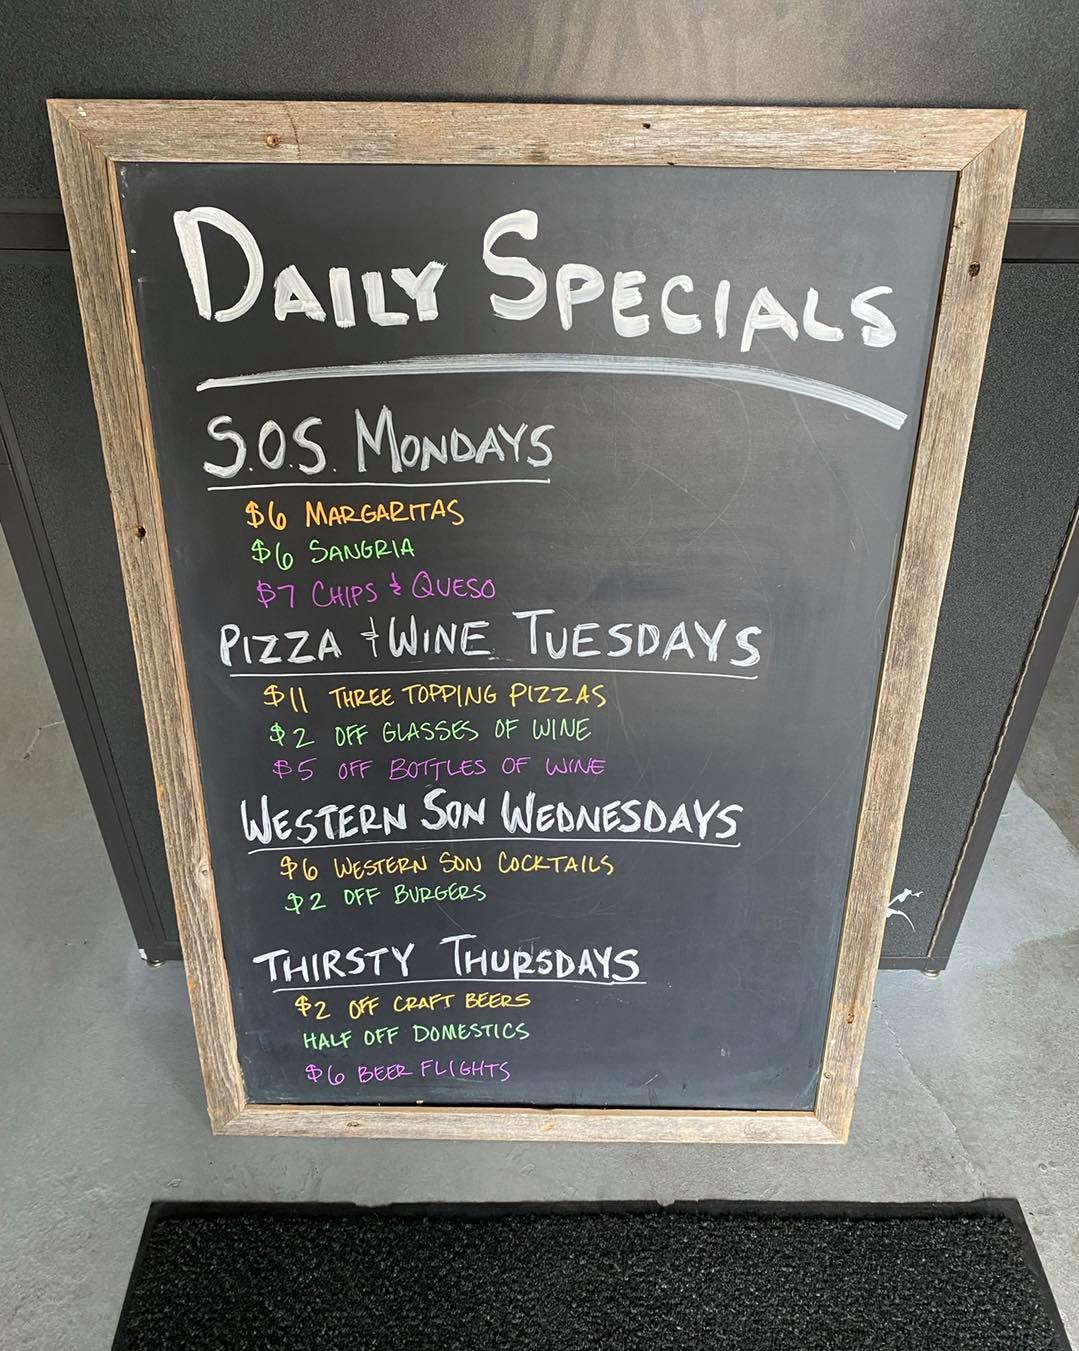 DAILY SPECIALS
S.O.S. MONDAYS
$6 MARGARITAS
$6 SANGRIA
$7 CHIPS & QUESO
PIZZA & WINE TUESDAYS
$11 THREE TOPPING PIZZAS
$2 OFF GLASSES OF WINE
$5 OFF BOTTLES OF WINE
WESTERN SON WEDNESDAYS
$6 WESTERN SON COCKTAILS
$2 OFF BURGERS
THIRSTY THURSDAYS
$2 OFF CRAFT BEERS
HALF OFF DOMESTICS
$6 BEER FLIGHTS